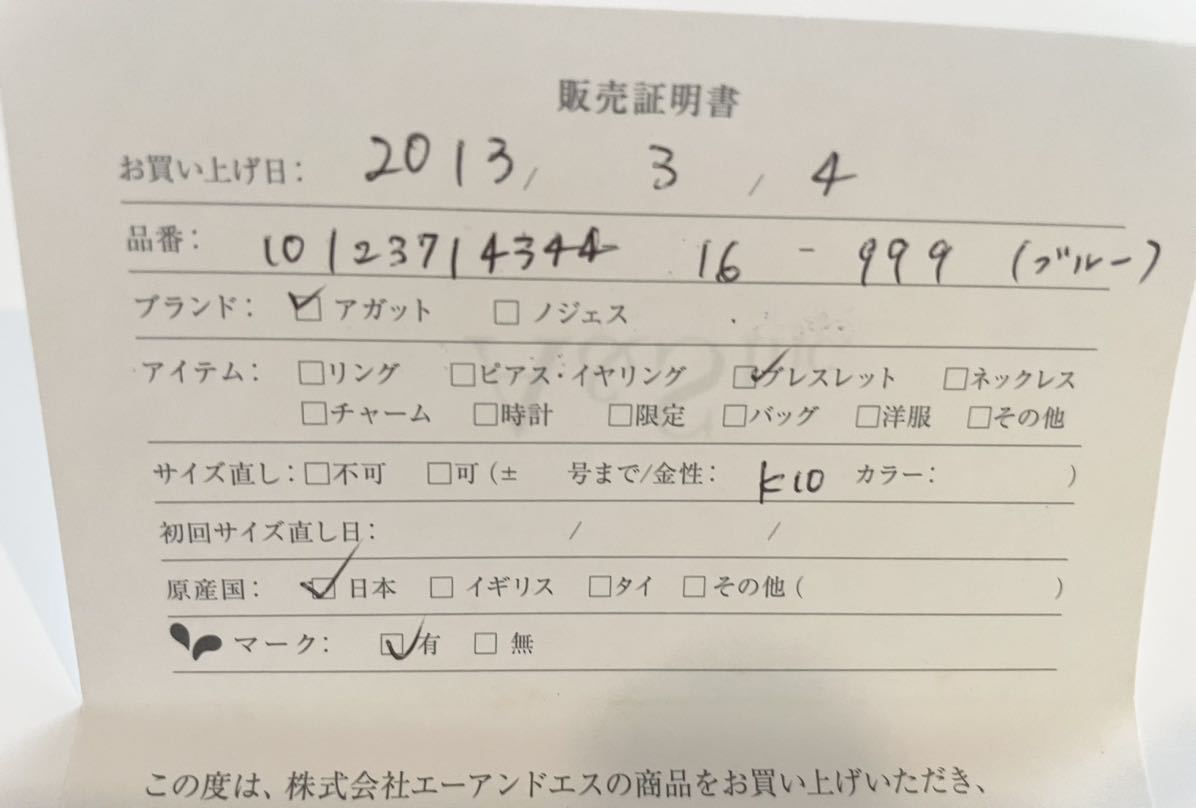 販売証明書
お買い上げ日: 2013/ 3 / 4
品番: 10123714344 16 - 999 (ブルー)
ブランド: ☑アガット □ノジェス
アイテム: □リング □ピアス・イヤリング ☑ブレスレット □ネックレス
□チャーム □時計 □限定 □バッグ □洋服 □その他
サイズ直し: □不可 □可 (± 号まで/金性: K10 カラー: )
初回サイズ直し日: / /
原産国: ☑日本 □イギリス □タイ □その他 ( )
マーク: ☑有 □無
この度は、株式会社エーアンドエスの商品をお買い上げいただき、